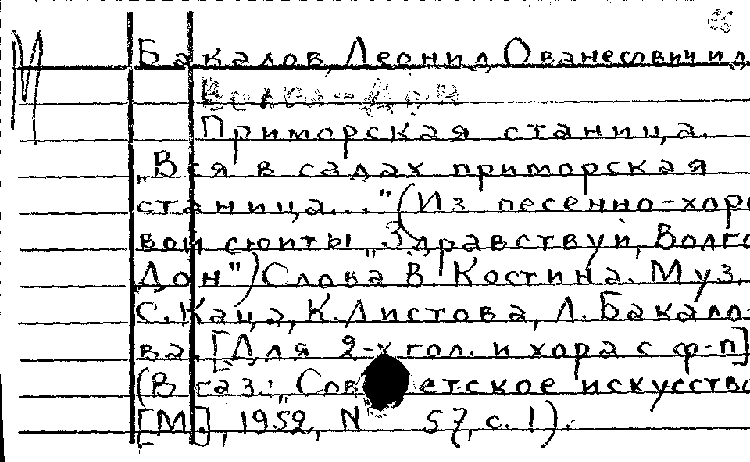 М
Бакалов, Леонид Ованесович и д
Волго-Дон
Приморская станица.
„Вся в садах приморская
станица..." (Из песенно-хоро
вой сюиты „Здравствуй, Волго
Дон") Слова В. Костина. Муз.
С. Каца, К. Листова, Л. Бакало-
ва. [Для 2-х гол. и хора с ф-п]
(В газ.: „Сов етское искусство
[М.], 1952, N 57, с. 1).